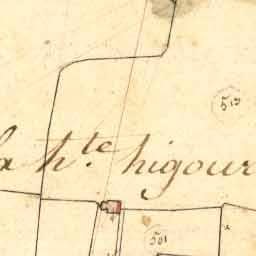 513
la h.te higour
501